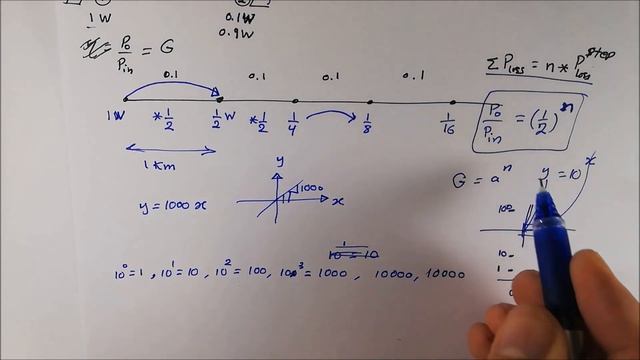 1W 0.1W
0.9W
Po/Pin = G
Σ Ploss = n * Ploss step
0.1 0.1 0.1 0.1
1W *1/2 1/2 W *1/2 1/4 1/8 1/16
Po/Pin = (1/2)^n
1 Km
y
G = a^n y = 10^x
1000
x
y = 1000 x
100-
10 = 10
10-
10^0 = 1 , 10^1 = 10 , 10^2 = 100, 10^3 = 1000 , 10000 , 10000
1-